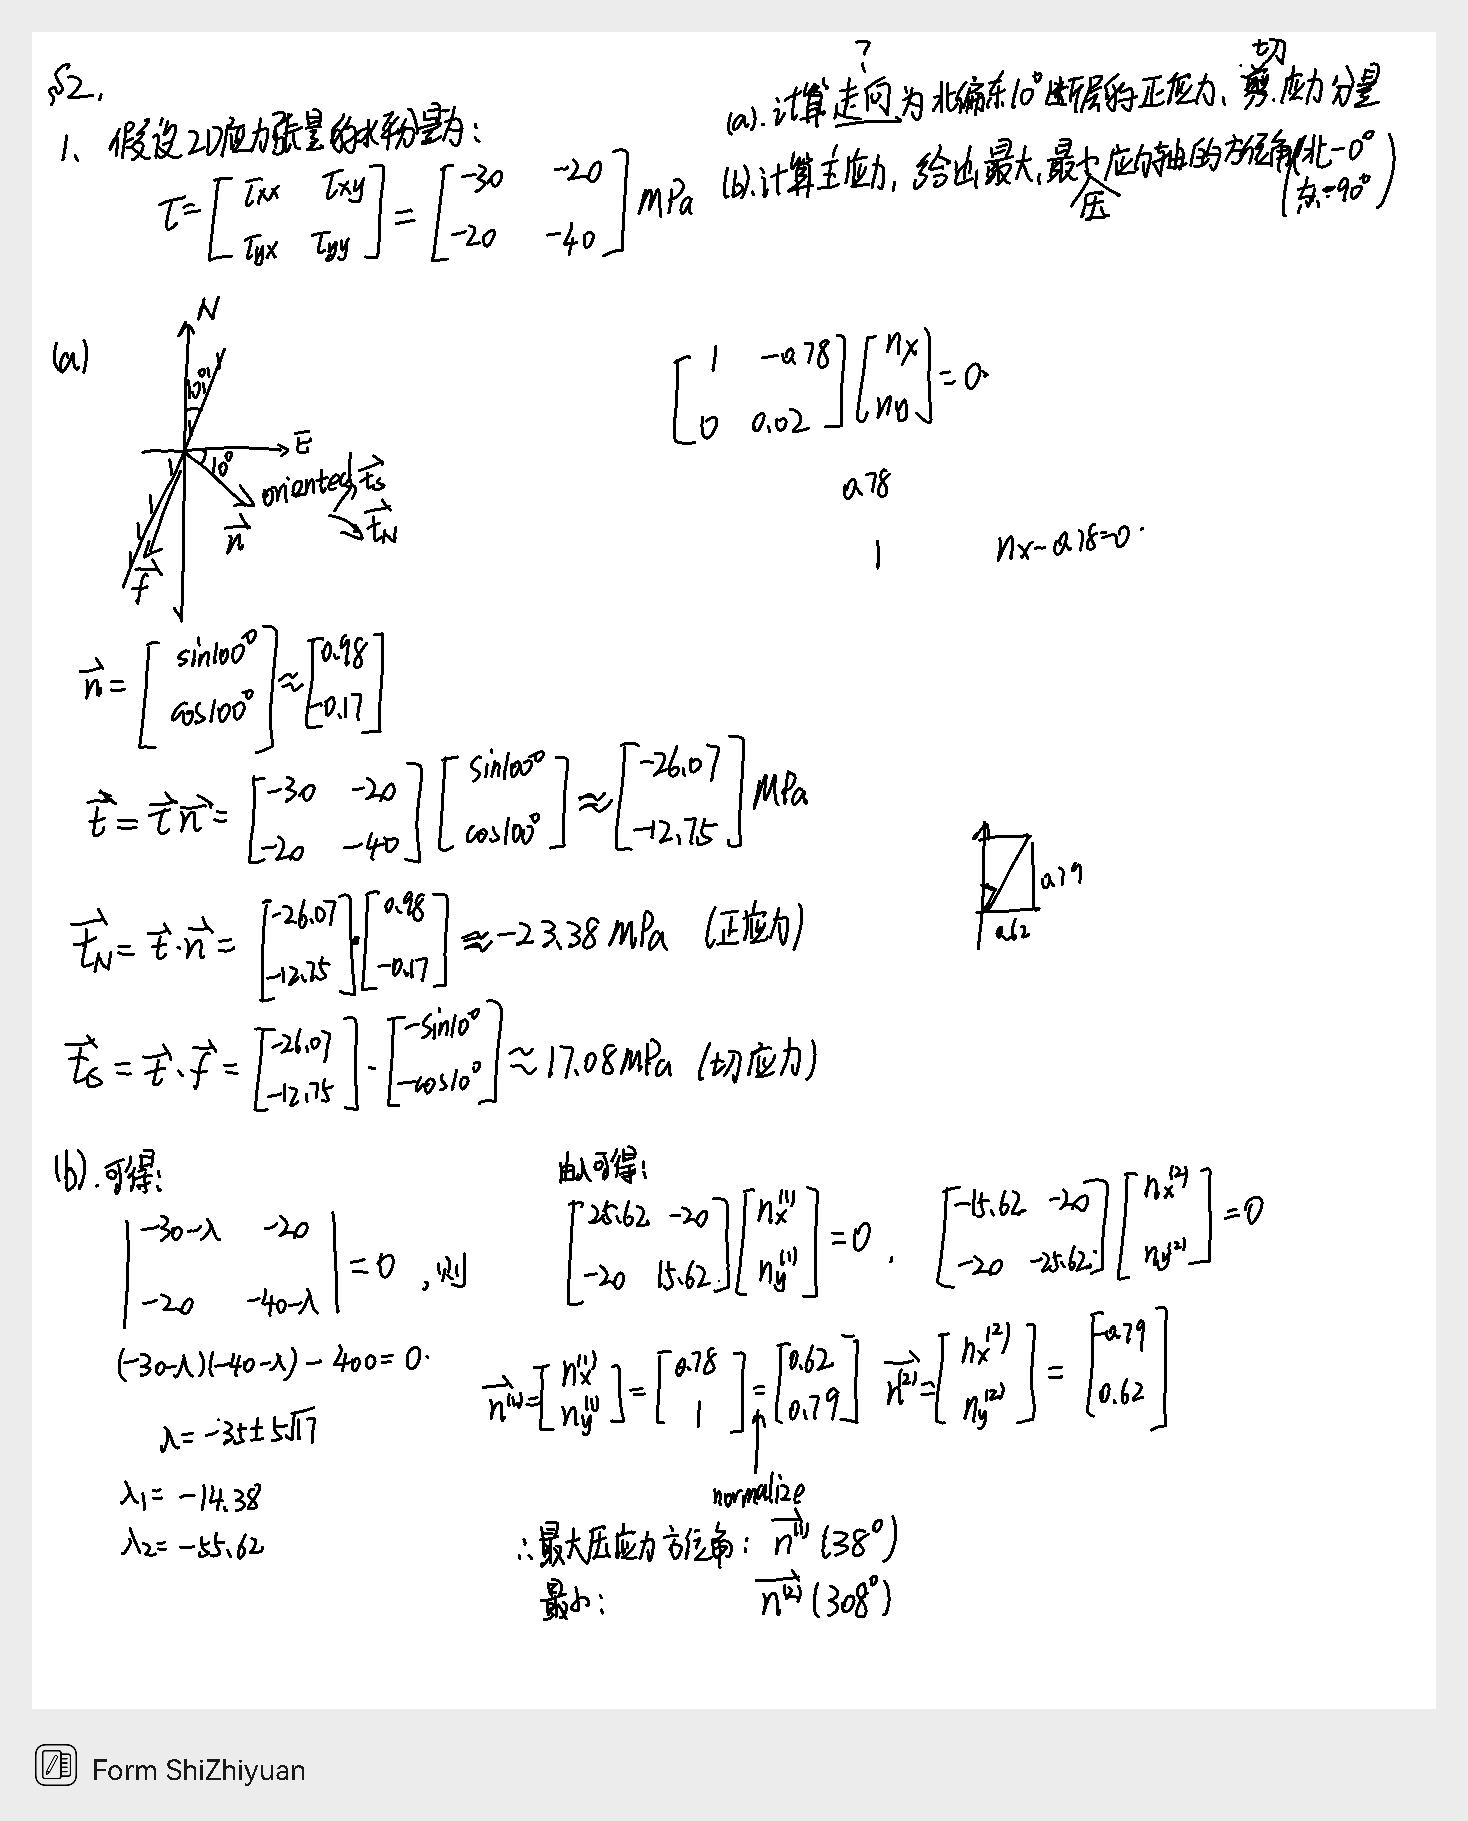 §2.
1、假设2D应力张量的水平分量为：
τ=[τxx τxy; τyx τyy]=[-30 -20; -20 -40] MPa
?
切
(a).计算走向为北偏东10°断层的正应力、剪应力分量
(b).计算主应力，给出最大、最小应力轴的方位角(北-0° 东=90°)
压
(a)
N
10°
E
10°
oriented
ts
tN
n
f
[1 -0.78; 0 0.02][nx; ny]=0
0.78
1
nx-0.78=0
n=[sin100°; cos100°]≈[0.98; -0.17]
t=τn=[-30 -20; -20 -40][sin100°; cos100°]≈[-26.07; -12.75] MPa
0.79
0.62
tN=t·n=[-26.07; -12.75]·[0.98; -0.17]≈-23.38 MPa (正应力)
ts=t·f=[-26.07; -12.75]·[-sin10°; -cos10°]≈17.08 MPa (切应力)
(b).可得：
|-30-λ -20; -20 -40-λ|=0，则
(-30-λ)(-40-λ)-400=0.
λ=-35±5√17
λ1=-14.38
λ2=-55.62
由λ可得：
[25.62 -20; -20 15.62][nx(1); ny(1)]=0， [-15.62 -20; -20 -25.62][nx(2); ny(2)]=0
n(1)=[nx(1); ny(1)]=[0.78; 1]=[0.62; 0.79] n(2)=[nx(2); ny(2)]=[-0.79; 0.62]
normalize
∴最大压应力方位角：n(1)(38°)
最小：n(2)(308°)
Form ShiZhiyuan